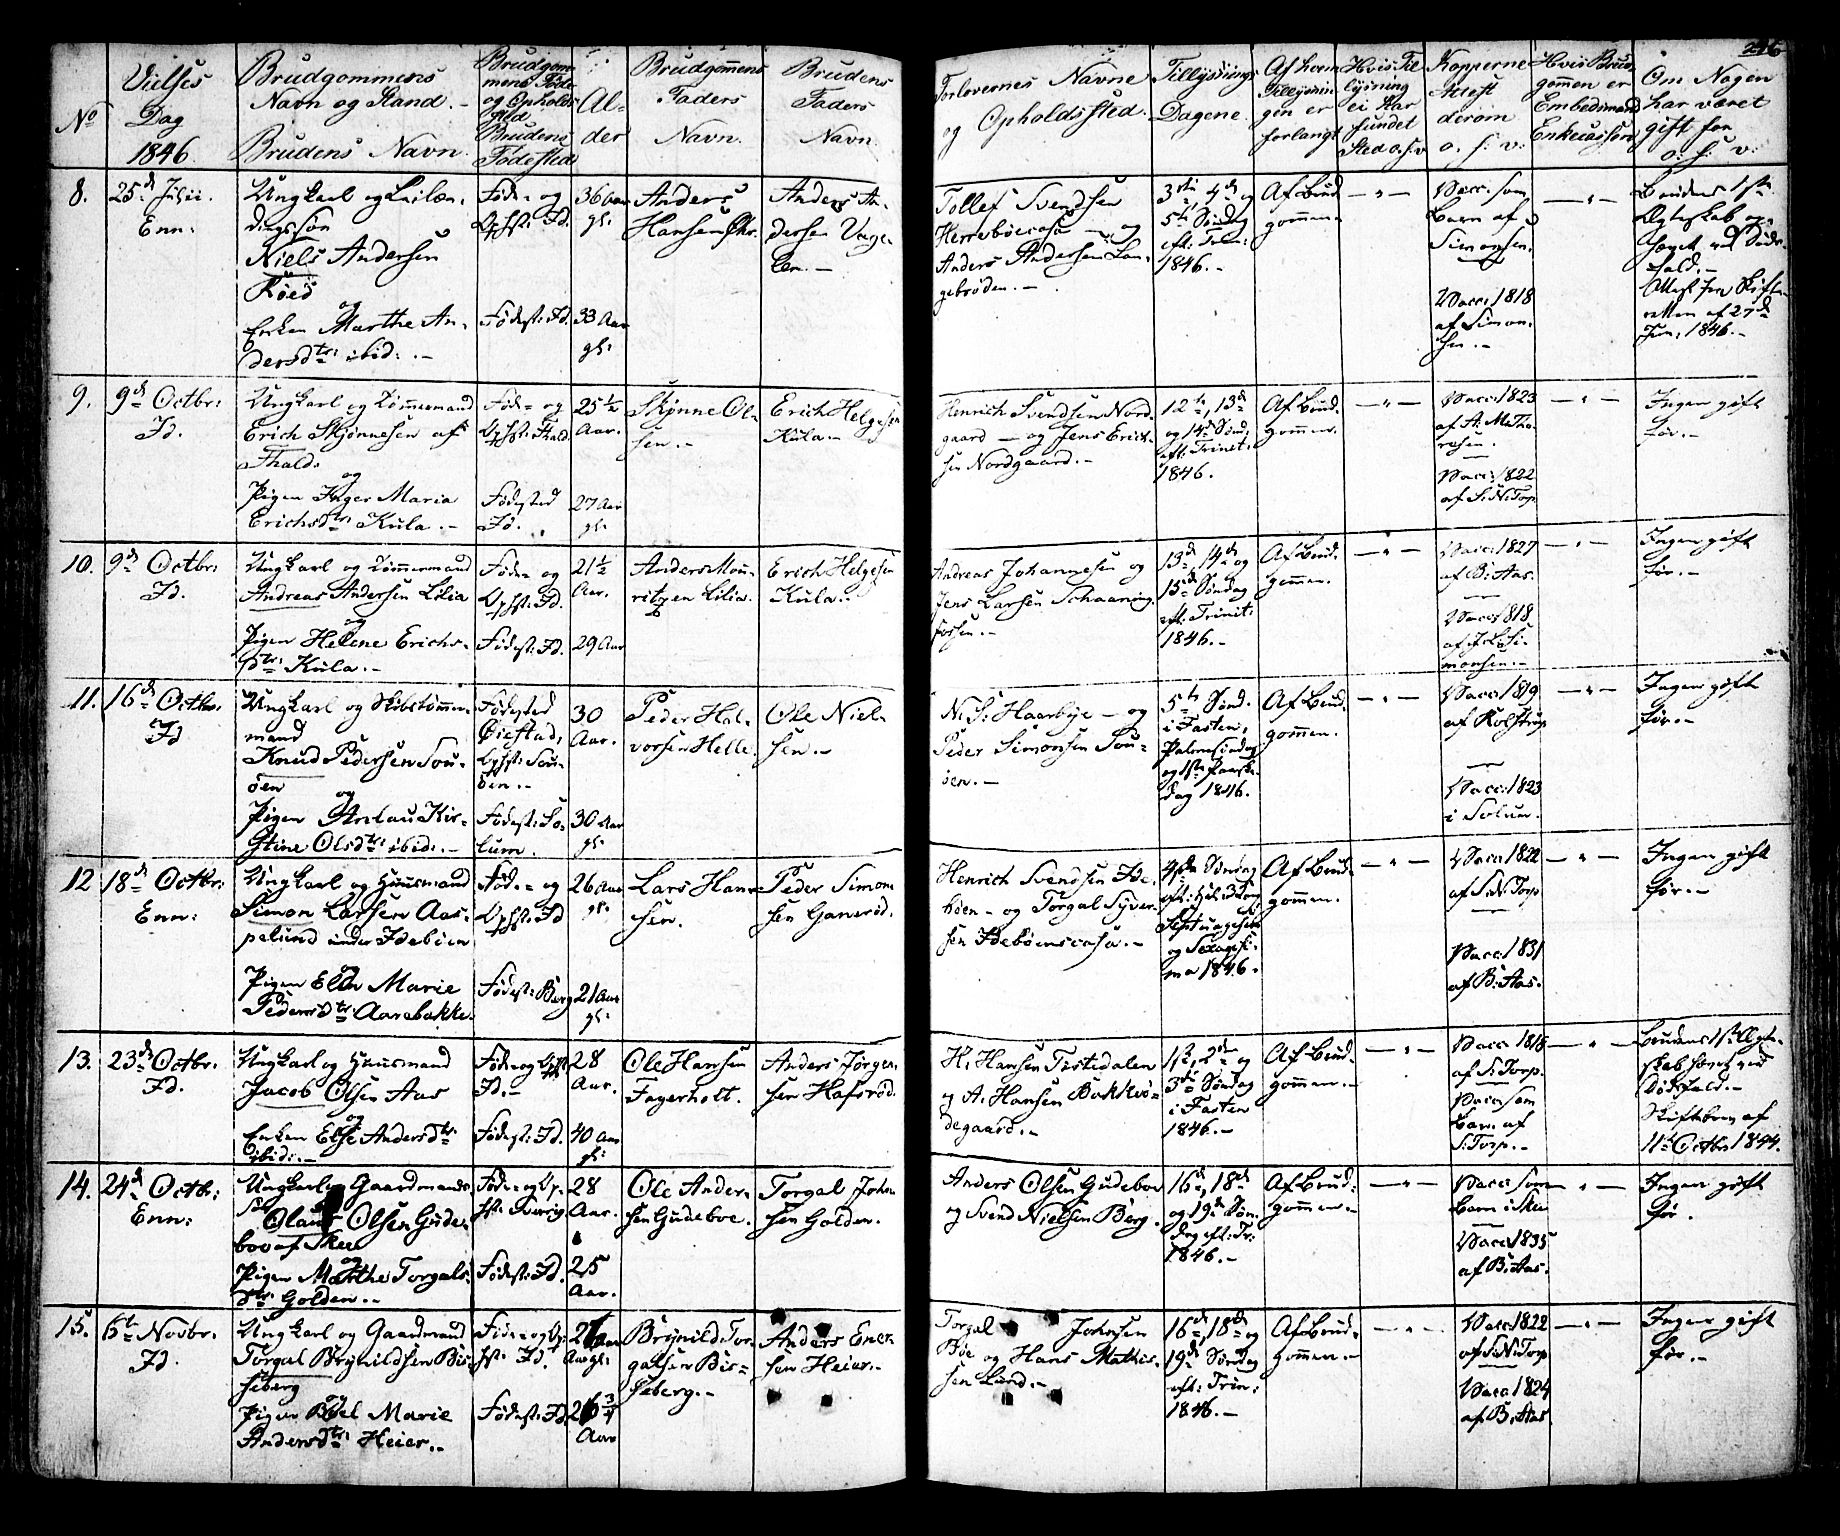 246
No
Vielses
Dag
1846
Brudgommens
Navn og Stand.
Brudens Navn.
Brudgom-
mens Føde
og Opholds
sted
Brudens
Fødested
Al-
der
Brudgommens
Faders
Navn.
Brudens
Faders
Navn
Forlovernes Navne
og Opholdssted.
Tillysnings
Dagene.
Af hvem
Tillysnin
gen er
forlangt
Hvis Til
lysning
ei har
fundet
Sted o.s.v
Kopperne
Attest
derom
o. s. v.
Hvis Brud
gommen er
Embedsmand
Enkecassen
Om Nogen
har været
gift før
o. s. v.
8.
25de Julii.
Enn:
Ungkarl og
dingssøn
Niels Andersen
Røed
og
Enken Marthe An-
dersdtr: ibid. -
Føde- og
Opht: Id.
Fødest: Id.
36 Aar
gl:
33 Aar
gl:
Anders
Hansen
Anders An-
dersen
Tollef Svendsen
Herrebøecasa og
Anders Andersen Lan-
gebrøden. -
3die, 4de og
5te Søndag
eft: Trin:
1846. -
Af Brud
gommen
- " -
Vacc: som
Barn af
Simonsen.
Vacc: 1818
af Simon-
sen. -
- " -
Brudens 1ste
Ægteskab op-
hævet ved Døds-
fald. -
Attest fra Skifte-
retten af 27de
Jun: 1846. -
9.
9de Octbr:
Id.
Ungkarl og Tømmermand
Erich Skjønnesen af
Fhald:
og
Pigen Inger Maria
Erichsdtr: Kula. -
Føde- og
Opht: Fhald.
Fødested
Id.
25 1/2
Aar.
27 Aar
gl:
Skjønne Ol-
sen. -
Erich Helgesen
Kula -
Henrich Svendsen Nord-
gaard - og Jens Erich-
sen Nordgaard. -
12te, 13de
og 14de Sønd:
eft: Trinit:
1846. -
Af Brud-
gommen.
- " -
Vacc: 1823
af A: M: Tho-
resen.
Vacc: 1822
af S: N: Torp
- " -
Ingen gift
før. -
10.
9de Octbr:
Id.
Ungkarl og Tømmermand
Andreas Andersen Lilia
og
Pigen Helene Erichs-
dtr: Kula. -
Føde- og
Opht: Id.
Fødest: Id.
21 1/2
Aar.
29 Aar
Anders Mou-
ritzen Lilia.
Erich Helgesen
Kula. -
Andreas Johannesen og
Jens Larsen Schaaning-
fossen. -
13de, 14de og
15de Søndag
eft: Trinit:
1846. -
Af Brud-
gommen.
- " -
Vacc: 1827
af B: Aas.
Vacc: 1818
af J: L: Si-
monsen. -
- " -
Ingen gift
før. -
11.
16de Octbr.
Id
Ungkarl og Skibstømmer-
mand
Knud Pedersen Sou-
øen
og
Pigen Anlau Kir-
stine Olsdtr: ibid: -
Fødested
Øiestad,
Opht: Sou-
øen. -
Fødest: So-
lum.
30
Aar.
30 Aar
gl:
Peder Hal-
vorsen Helle.
Ole Niel-
sen. -
N: S: Haarbye - og
Peder Simonsen Sou-
øen. -
5te Sønd.
i Fasten,
Palmesøndag
og 1ste Paaske-
dag 1846.
Af Brud-
gommen.
- " -
Vacc: 1819
af Kolstrup
Vacc: 1823
i Solum.
- " -
Ingen gift
før. -
12
18de Octbr:
Enn:
Ungkarl og Huusmand
Simon Larsen Aas-
pelund under Idebøen
Pigen Elen Marie
Pedersdtr Aarebakke.
Føde- og
Opht: Id
Fødest: Berg
26 Aar
gl:
21 Aar
gl:
Lars Han-
sen.
Peder Simon
sen Gansrød.
Henrich Svendsen Ide-
bøen - og Torgal Syver-
sen Idebøenscasa. -
4de Søndag
eft: Hel: 3 Kong
Septuagesim
og Sexagesi-
ma 1846. -
Af Brud-
gommen.
- " -
Vacc: 1822
af S: N: Torp
Vacc: 1831
af B: Aas.
- " -
Ingen gift
før. -
13.
23de Octbr.
Id.
Ungkarl og Huusmand
Jacob Olsen Aas
og
Enken Else Andersdtr:
ibid: -
Føde- og Opht
Id. -
Fødest: Id.
28
Aar.
40 Aar
gl:
Ole Hansen
Fagerholt.
Anders Jørgen-
sen Hafsrød.
H: Hansen Tistedalen
og A: Hansen Bakke-
degaard. -
1ste, 2den og
3die Søndag
i Fasten
1846. -
Af Brud-
gommen. -
- " -
Vacc: 1818
af S: Torp.
Vacc: som
Barn af
S: Torp. -
- " -
Brudens 1ste Ægte-
skab hævet ved
Dødsfald. -
Skiftebrev af
11te Octbr 1844.
14.
24de Octbr:
Enn:
Ungkarl Gaardmands
søn
Olaus Olsen Gude-
boe af Skee
og
Pigen Marthe Torgals-
dtr: Golden. -
Føde- og Op-
ht: Sverrig
Fødest: Id.
28
Aar.
25
Aar.
Ole Ander-
sen Gudeboe.
Torgal Johan
sen Golden.
Anders Olsen Gudeboe
og Svend Nielsen Berg.
16de, 18de
og 19de Søn-
dag eft: Tr:
1846. -
Af Brud-
gommen. -
- " -
Vacc: som
Barn i Skee
Vacc: 1835
af B: Aas.
- " -
Ingen gift
før.
15.
6te Novbr.
Id.
Ungkarl og Gaardmand
Torgal Brynildsen Bis-
seberg
og
Pigen Boel Marie
Andersdtr: Heier. -
Føde- og Op-
ht: Id.
Fødest: Id
26 3/4
Aar
Brynild Tor-
galsen Bis-
seberg. -
Anders Ener-
sen Heier. -
Torgal Johnsen
Bøe og Hans Mathis-
sen Lund. -
16de, 18de og
19de Søndag
eft: Trin:
1846. -
Af Brud-
gommen. -
- " -
Vacc: 1822
af S: N: Torp
Vacc: 1824
af B: Aas
- " -
Ingen gift
før. -